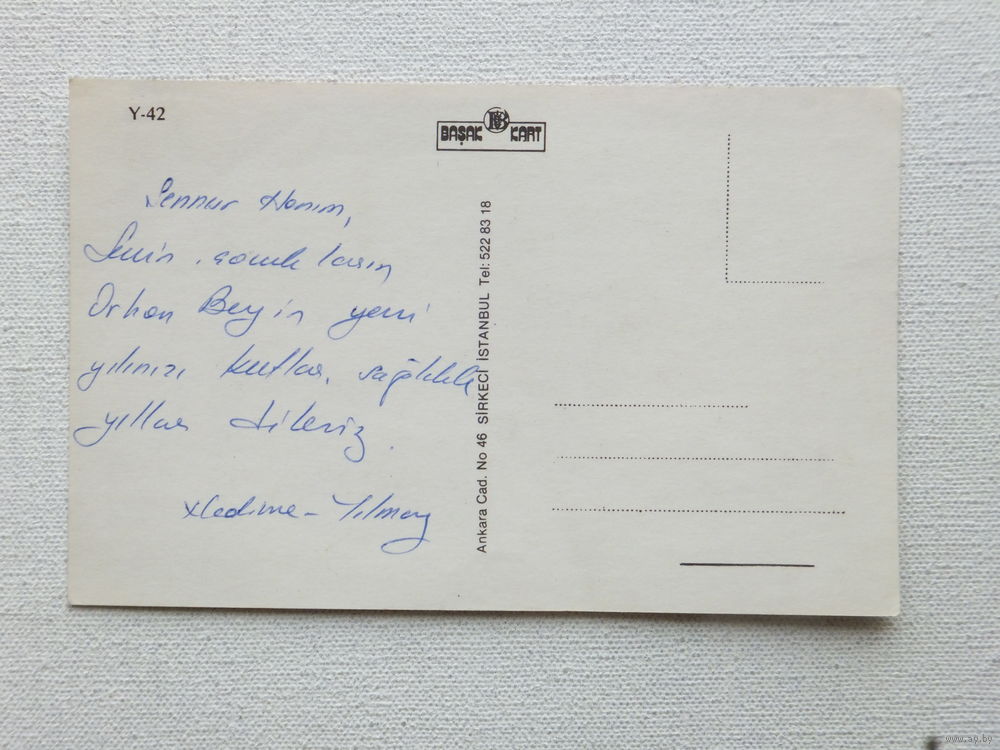 Y-42
BAŞAK KART
Sennur Hanım,
Senin, çocukların
Orhan Bey'in yeni
yılınızı kutlar, sağlıklı
yıllar dileriz.
Hadime - Yılmaz
Ankara Cad. No 46 SİRKECİ İSTANBUL Tel: 522 83 18
www.ay.by